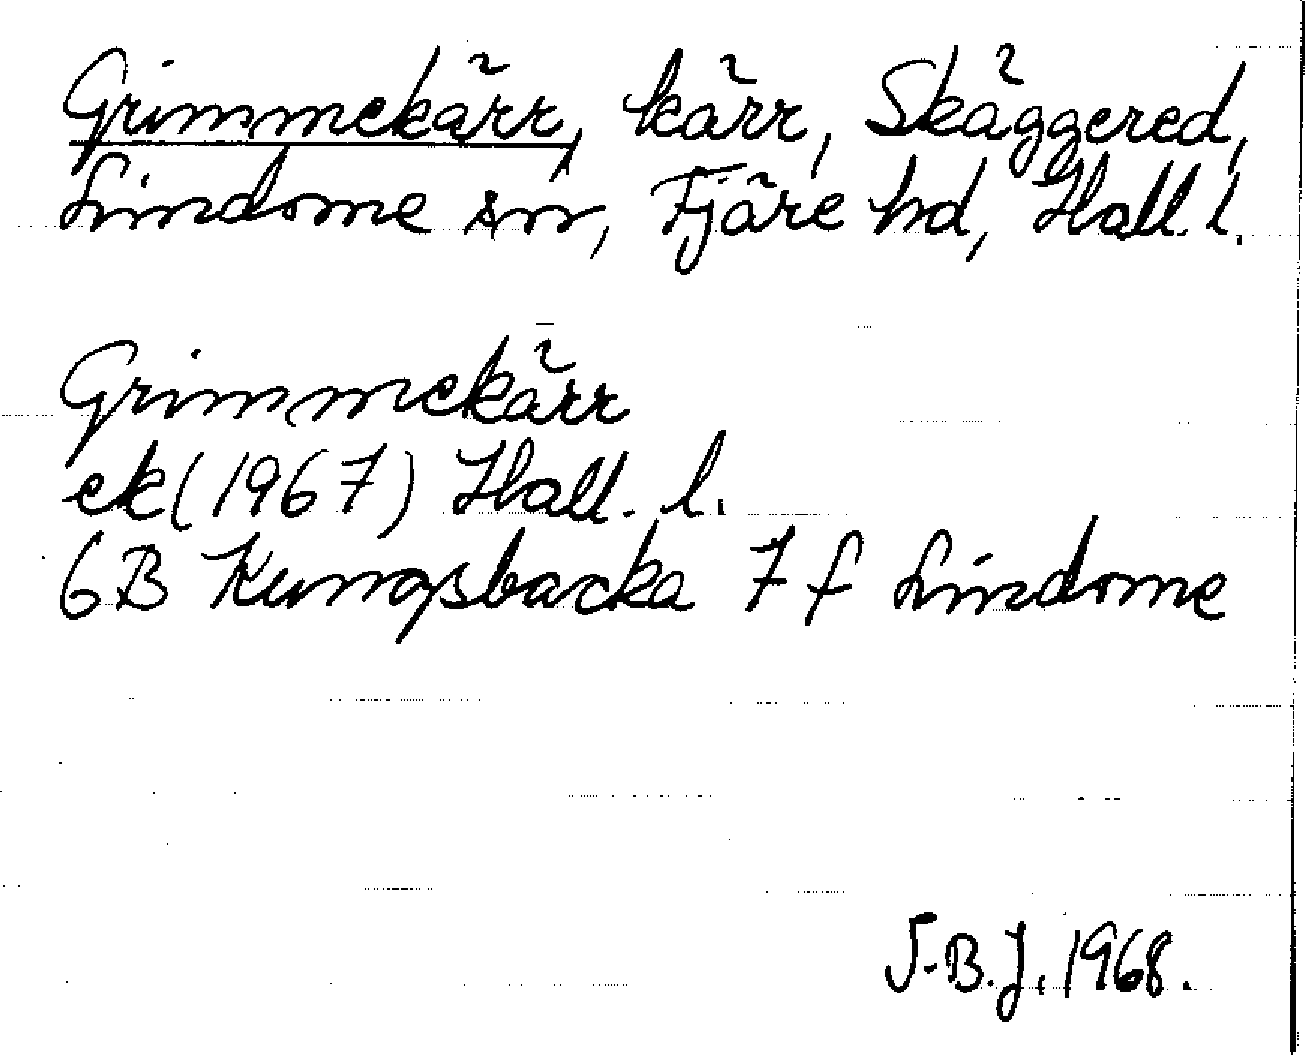 Grimmekärr, kärr, Skäggered,
Lindome sn, Fjäre hd, Hall. l.
Grimmekärr
ek (1967) Hall. l.
6B Kungsbacka 7 f Lindome
J-B.J. 1968.